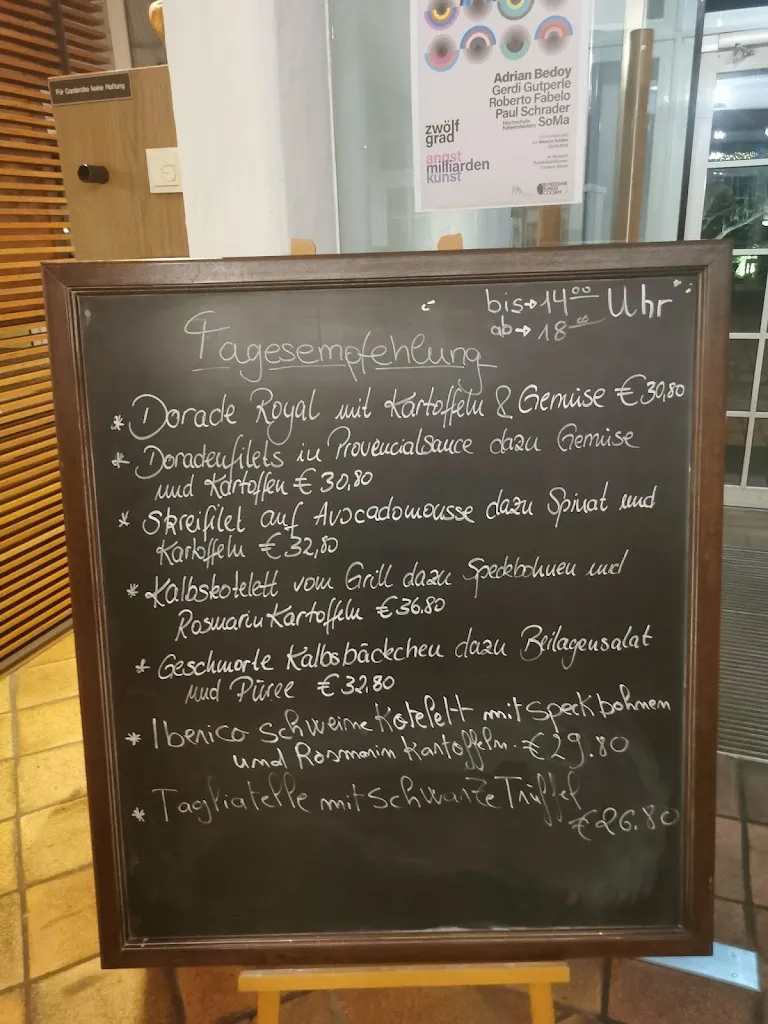 Für Garderobe keine Haftung
Adrian Bedoy
Gerdi Gutperle
Roberto Fabelo
Paul Schrader
SoMa
zwölf
grad
angst
milliarden
kunst
bis→14⁰⁰ Uhr
ab→18⁰⁰
Tagesempfehlung
* Dorade Royal mit Kartoffeln & Gemüse €30,80
* Doradenfilets in Provencialsauce dazu Gemüse
und Kartoffen €30,80
* Skreifilet auf Avocadomousse dazu Spinat und
Kartoffeln €32,80
* Kalbskotelett vom Grill dazu Speckbohnen und
RosmarinKartoffeln €36,80
* Geschmorte Kalbsbäckchen dazu Beilagensalat
und Püree €32,80
* Iberico schweine Kotelett mit speckbohnen
und Rosmarin Kartoffeln. €29.80
* Tagliatelle mit schwarze Trüffel
€26.80